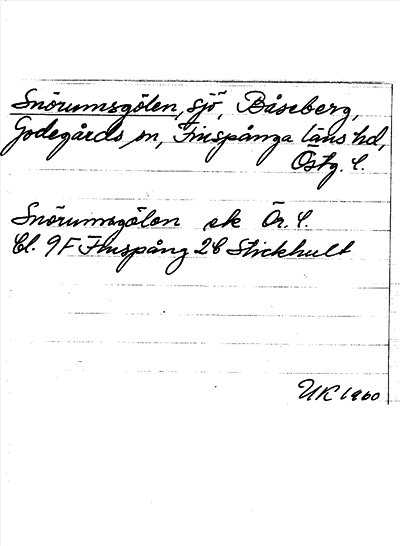 Snörumsgölen, sjö, Båseberg,
Godegårds sn, Finspånga läns hd,
Östg. l.
Snörumsgölen ek Ör. l.
Bl. 9F Finspång 2C Stickhult
UK 1960